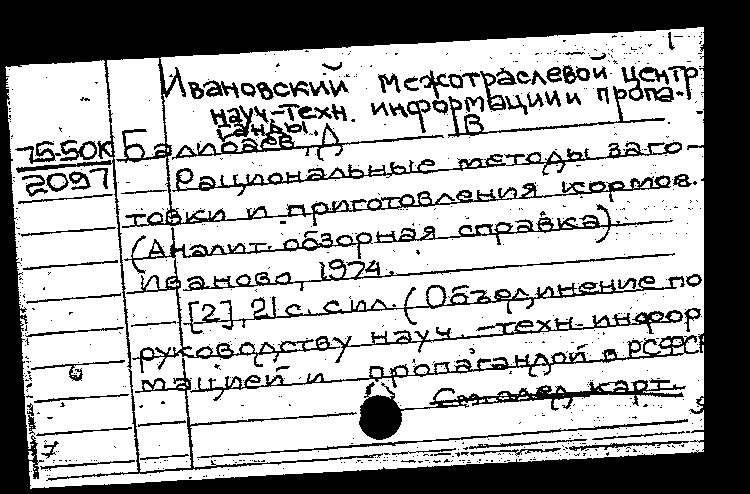 Ивановский межотраслевой центр
науч.-техн. информации и пропа-
ганды.
75-50К
2097
Балибаев, Д В
Рациональные методы заго-
товки и приготовления кормов.
(Аналит. обзорная справка).
Иваново, 1974.
[2], 21 с. с ил. (Объединение по
руководству науч.-техн. инфор
мацией и пропагандой в РСФСР
См. след. карт.